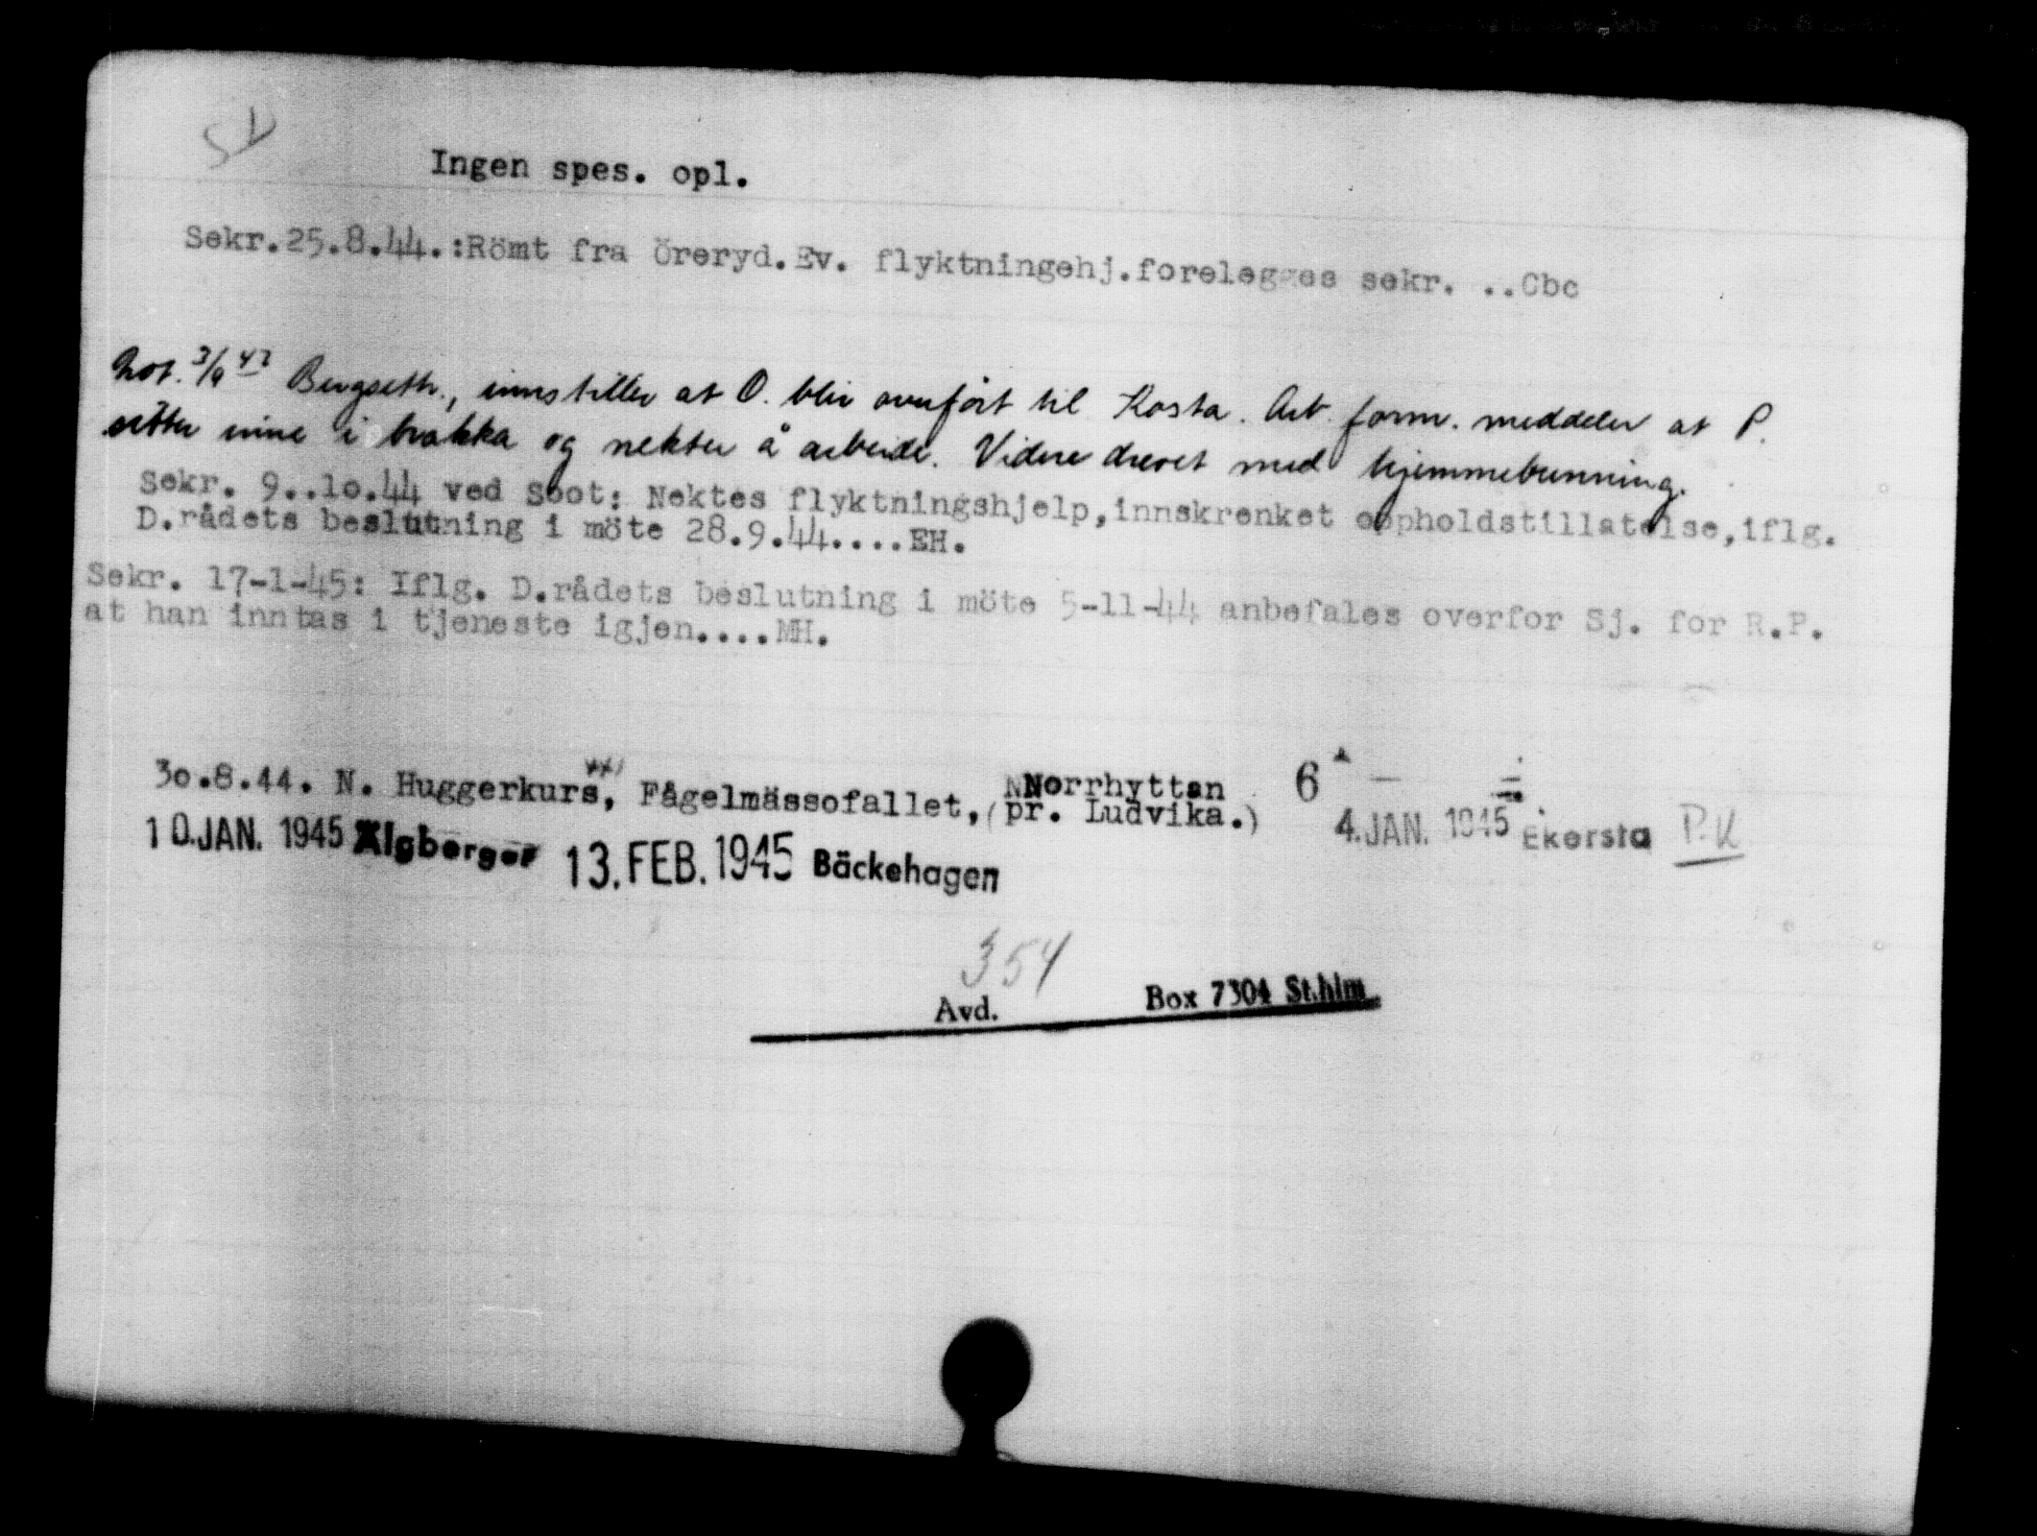 SV
Ingen spes. opl.
Sekr.25.8.44.:Römt fra Öreryd.Ev. flyktningehj.forelegges sekr. ..Cbc
Not. 3/9 43 Bergseth., innstiller at O. blir overfört til Kosta. Arb. form. meddeler at P.
sitter inne i brakka og nekter å arbeide. Videre drevet med hjemmebrenning.
Sekr. 9..10.44 ved Soot: Nektes flyktningshjelp,innskrenket oppholdstillatelse,iflg.
D.rådets beslutning i möte 28.9.44....EH.
Sekr. 17-1-45: Iflg. D.rådets beslutning i möte 5-11-44 anbefales overfor Sj. for R.P.
at han inntas i tjeneste igjen....MH.
30.8.44. N. Huggerkurs, Fågelmässofallet, (Norrhyttan
pr. Ludvika.) 6
4.JAN. 1945 Ekersta P.K
10.JAN. 1945 Älgberget 13.FEB.1945 Bäckehagen
354
Avd. Box 7304 St.hlm